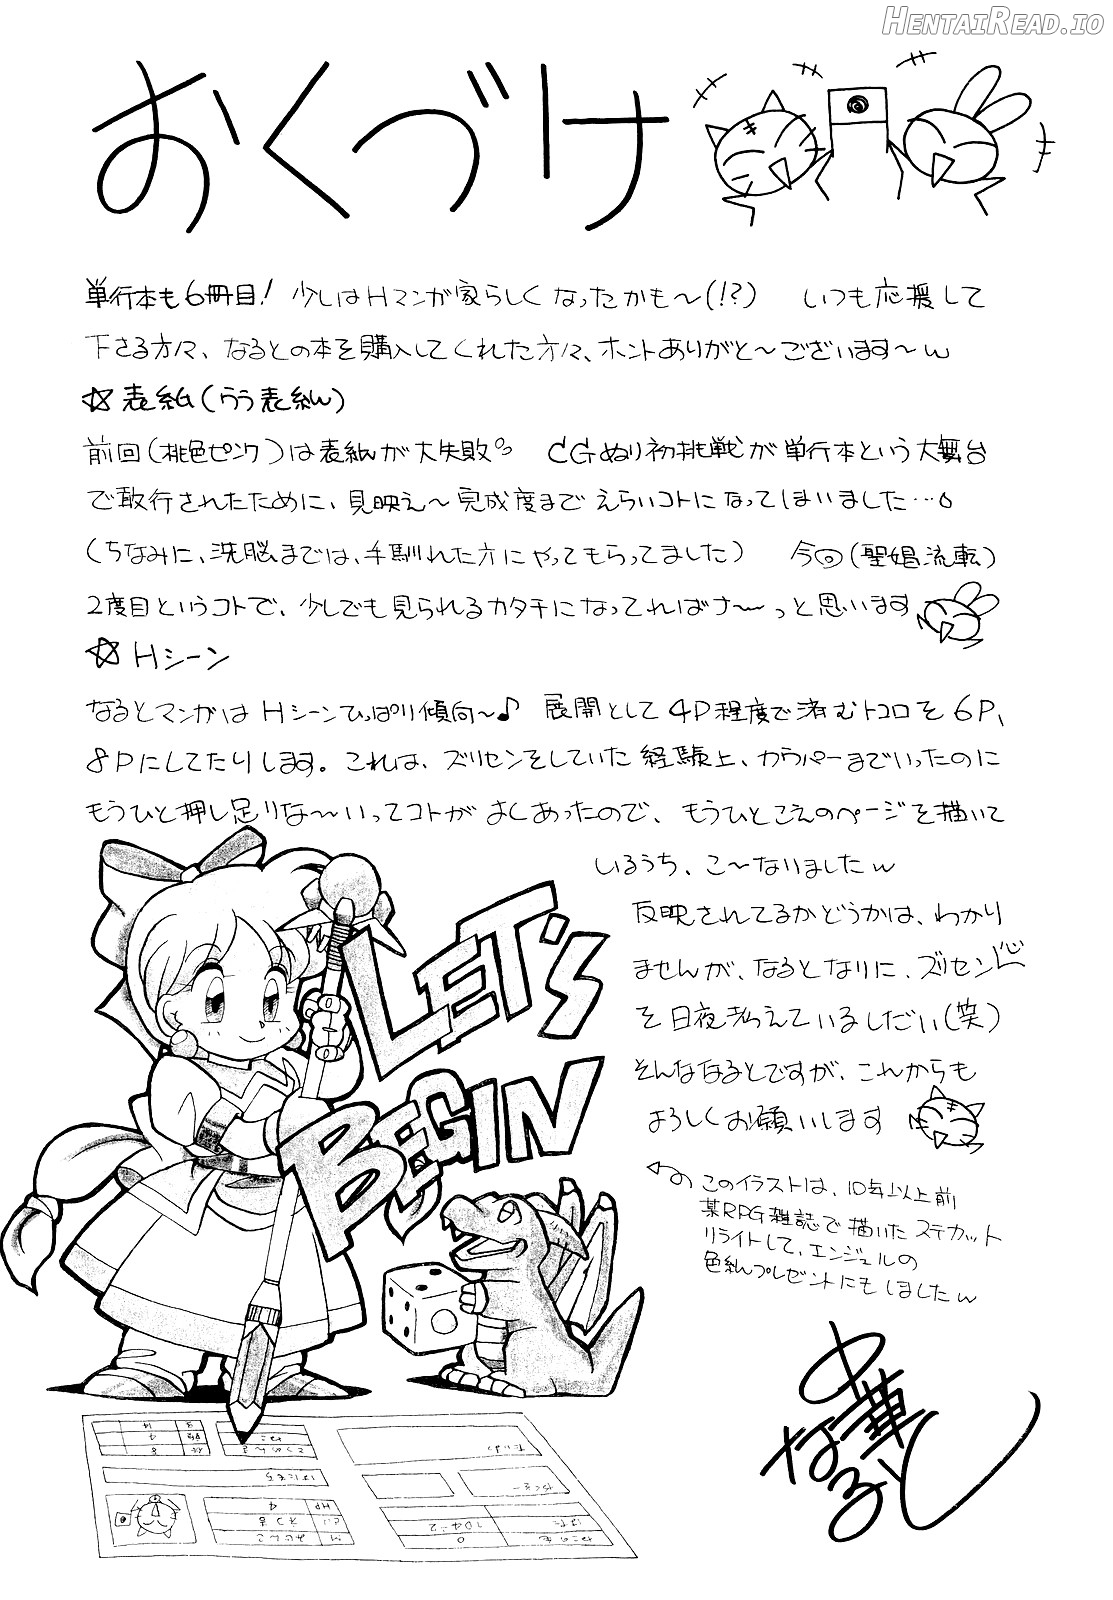 HENTAIREAD.IO
おくづけ
単行本も6冊目! 少しはHマンガ家らしくなったかも～(!?) いつも応援して
下さる方々、なるとの本を購入してくれた方々、ホントありがと～ございます～w
☆表紙(うう表紙)
前回(桃色ピンク)は表紙が大失敗。 CGぬり初挑戦が単行本という大舞台
で敢行されたために、見映え～完成度まで えらいコトになってしまいました…。
(ちなみに、洗脳までは、手馴れた方にやってもらってました) 今回(聖娼流転)
2度目というコトで、少しでも見られるカタチになってればナ～っと思います
☆Hシーン
なるとマンガはHシーンひっぱり傾向～♪ 展開として4P程度で済むトコロを6P、
8Pにしてたりします。これは、ズリセンをしていた経験上、カウパーまでいったのに
もうひと押し足りな～いってコトがよくあったので、もうひとこえのページを描いて
いるうち、こ～なりましたw
反映されてるかどうかは、わかり
ませんが、なるとなりに、ズリセン
を日夜考えているしだい(笑)
そんななるとですが、これからも
よろしくお願いします
このイラストは、10年以上前
某RPG雑誌で描いたステカット
リライトして、エンジェルの
色紙プレゼントにもしましたw
LET'S
BEGIN
中華
なると
HP
4
0